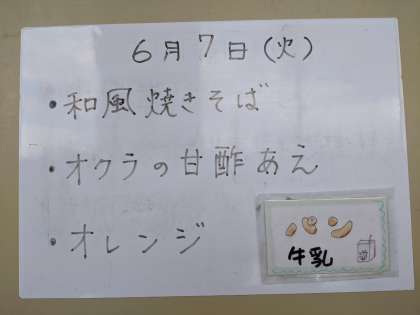 6月7日(火)
・和風焼きそば
・オクラの甘酢あえ
・オレンジ
パン
牛乳